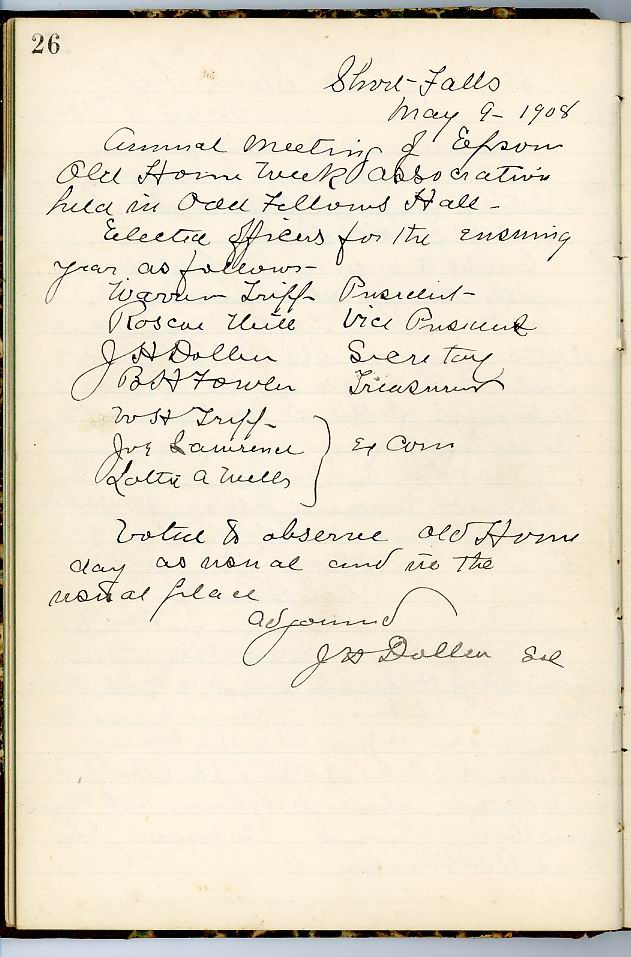 26
Short Falls
May 9 - 1908
Annual Meeting of Epsom
Old Home Week association
held in Odd Fellows Hall -
Elected officers for the ensuing
year as follows -
Warren Tripp President
Roscoe Hill Vice President
J H Dolbeer Secretary
B H Fowler Treasurer
W H Tripp
Joe Lawrence Ex Com
Lottie A Wells
Voted to observe old Home
day as usual and in the
usual place
adjourned
J H Dolbeer Sec